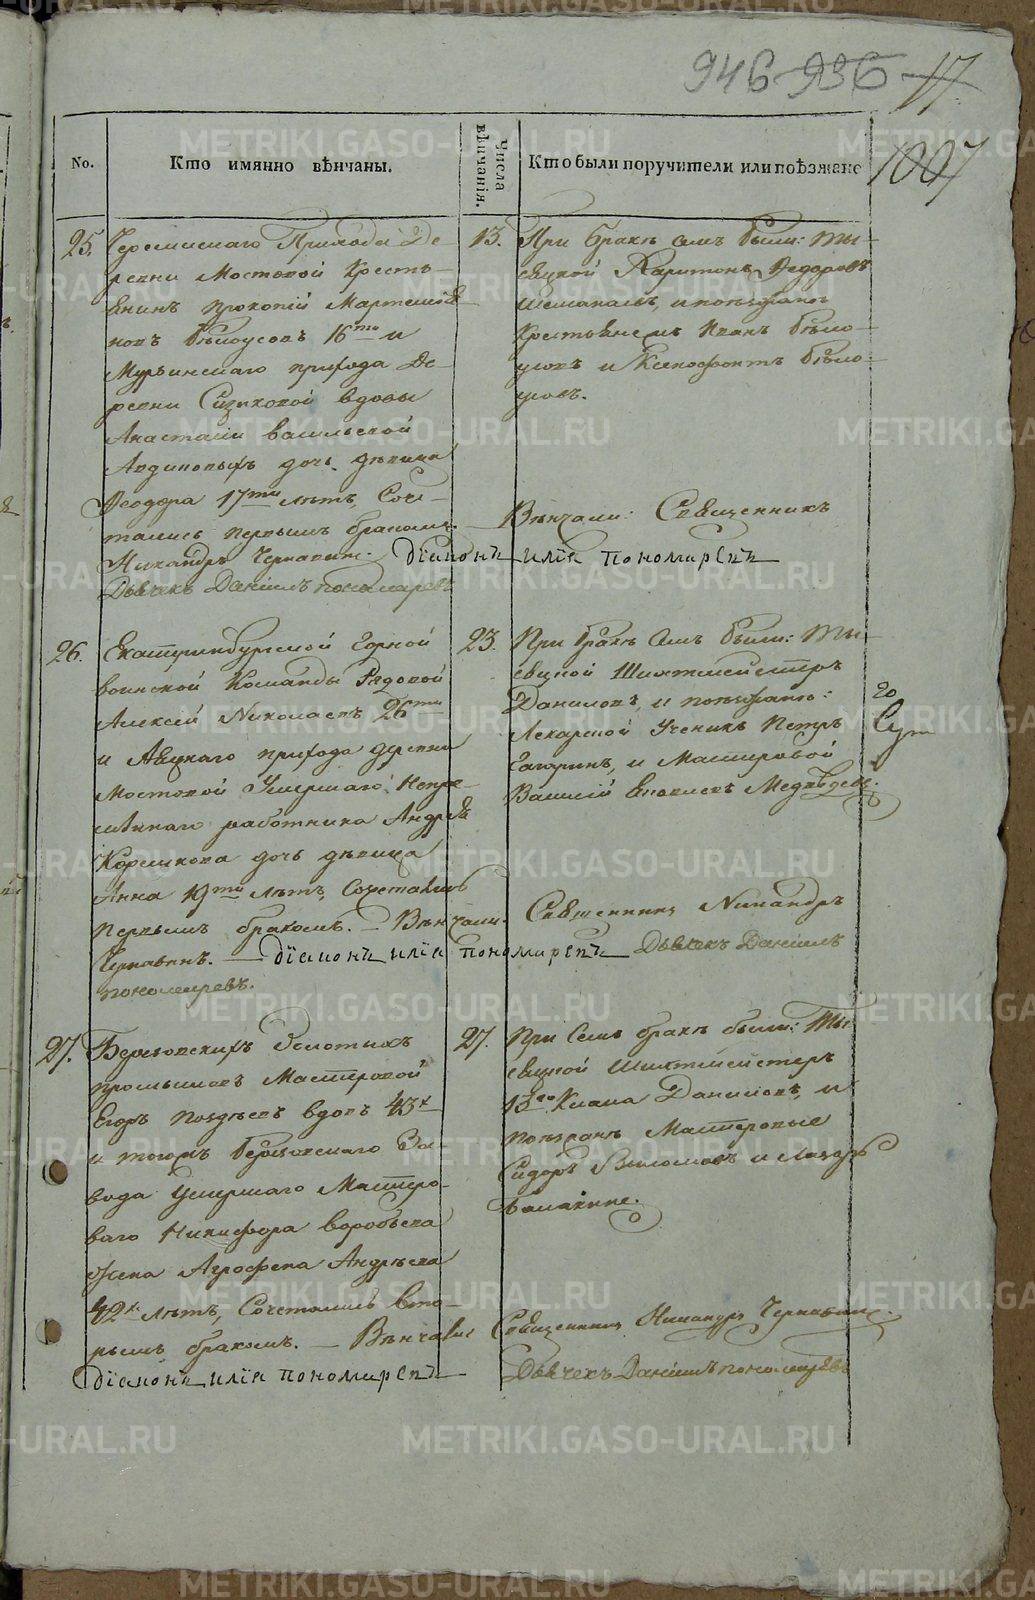 946 936 17
1007
No.
Кто имянно вѣнчаны.
Числа вѣнчанія.
Кто были поручители или поѣзжане
25.
Прихода Де-
ревни Мостовой Кресть-
янинъ Прокопій
новъ Бѣлоусовъ 16ти и
прихода Де-
ревни вдовы
Анастасіи Васильевой
дочь дѣвица
Ѳеодора 17ти лѣтъ, Соче-
тались первымъ бракомъ.
Никандръ Чернавинъ.
Дьячекъ Даніилъ Пономаревъ
13.
При бракѣ семъ были: Ты-
сяцкой Харитонъ Ѳедоровъ
и поѣзжане
Крестьяне Иванъ Бѣло-
усовъ и Ксенофонтъ Бѣло-
усовъ.
Вѣнчали: Священникъ
Діаконъ Илія Пономаревъ
26.
Екатеринбургской Горной
воинской Команды Рядовой
Алексѣй Николаевъ 26ти
и прихода деревни
Мостовой Умершаго Непре-
мѣннаго работника Андрея
дочь дѣвица
Анна 19ти лѣтъ, Сочетались
первымъ бракомъ. — Вѣнчали:
Чернавинъ. — Діаконъ Илія Пономаревъ
Пономаревъ.
23.
При бракѣ семъ были: Ты-
сяцкой Шихтмейстеръ
Даниловъ, и поѣзжане:
Лекарской Ученикъ Петръ
Гагаринъ, и Мастеровой
Василій Медвѣдевъ.
Священникъ Никандръ
Дьячекъ Даніилъ
27.
Березовскихъ Золотыхъ
промысловъ Мастеровой
Егоръ Поздѣевъ вдовъ 43х
и того Березовскаго За-
вода Умершаго Мастеро-
ваго Никифора Воробьева
жена Агрофена Андрѣева
42х лѣтъ, Сочетались вто-
рымъ бракомъ. — Вѣнчали
Діаконъ Илія Пономаревъ
27.
При семъ бракѣ были: Ты-
сяцкой Шихтмейстеръ
13го Класа Даниловъ, и
поѣзжане Мастеровые
Сидоръ и Лазарь
Священникъ Никандръ Чернавинъ.
Дьячекъ Даніилъ Пономаревъ
METRIKI.GASO-URAL.RU